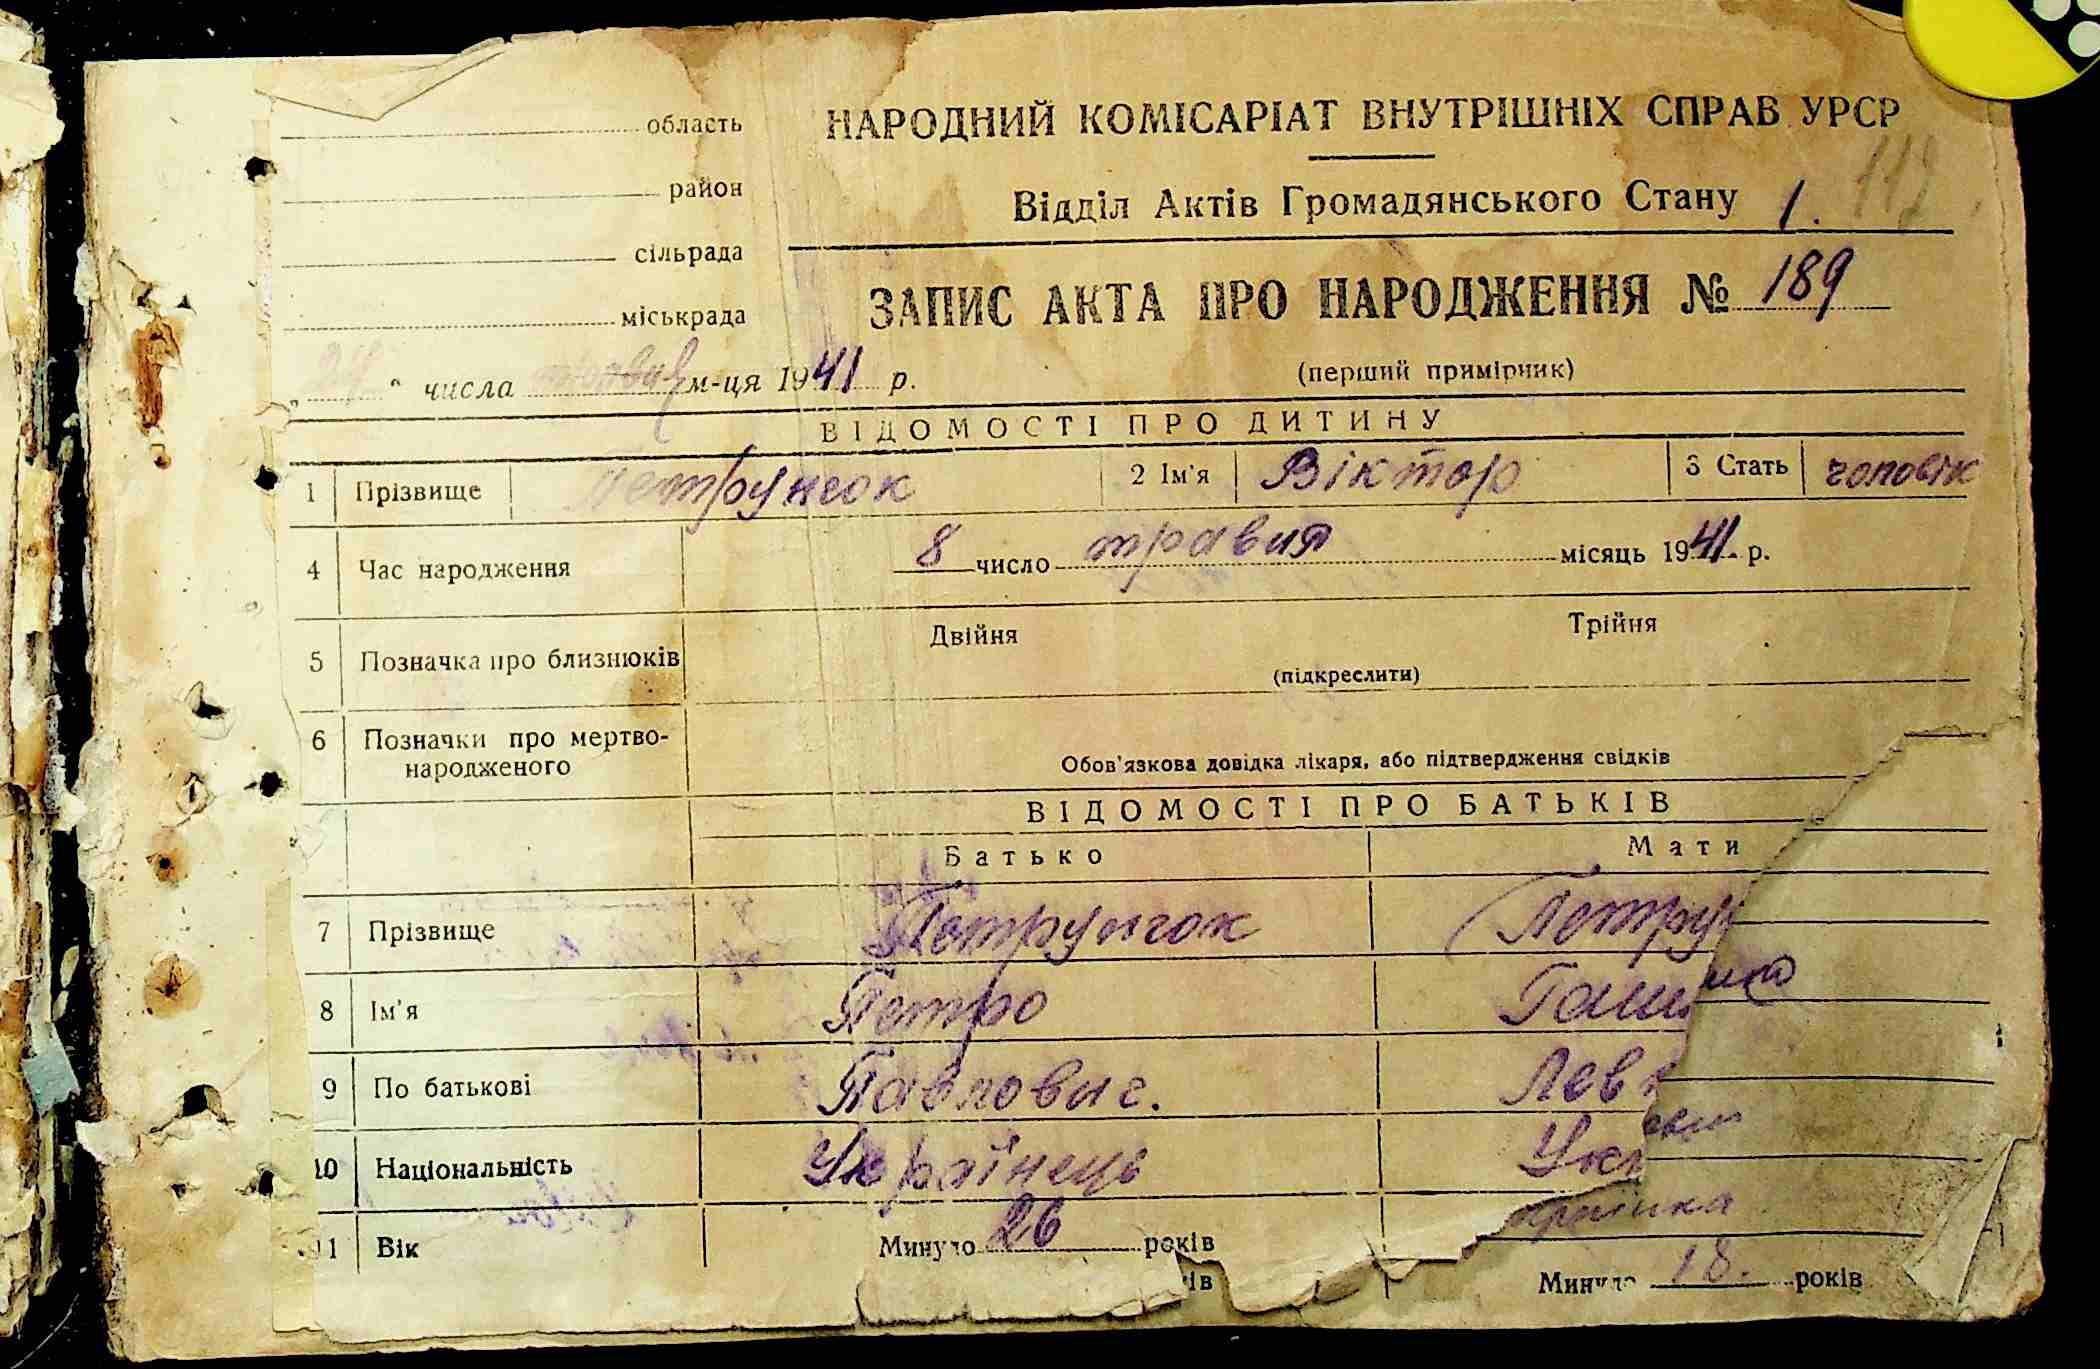 область
район
сільрада
міськрада
НАРОДНИЙ КОМІСАРІАТ ВНУТРІШНІХ СПРАВ УРСР
112
Відділ Актів Громадянського Стану 1.
ЗАПИС АКТА ПРО НАРОДЖЕННЯ № 189
(перший примірник)
„24“ числа м-ця 1941 р.
ВІДОМОСТІ ПРО ДИТИНУ
1 Прізвище Петрунчок 2 Ім'я Віктор 3 Стать чоловік
4 Час народження 8 число травня місяць 1941. р.
5 Позначка про близнюків Двійня Трійня
(підкреслити)
6 Позначки про мертво-
народженого
Обов'язкова довідка лікаря, або підтвердження свідків
ВІДОМОСТІ ПРО БАТЬКІВ
Батько Мати
7 Прізвище Петрунчок Петру
8 Ім'я Петро
9 По батькові Павлович. Лев
10 Національність Українець Українка
11 Вік Минуло 26 років
ів
Минуло 18. років